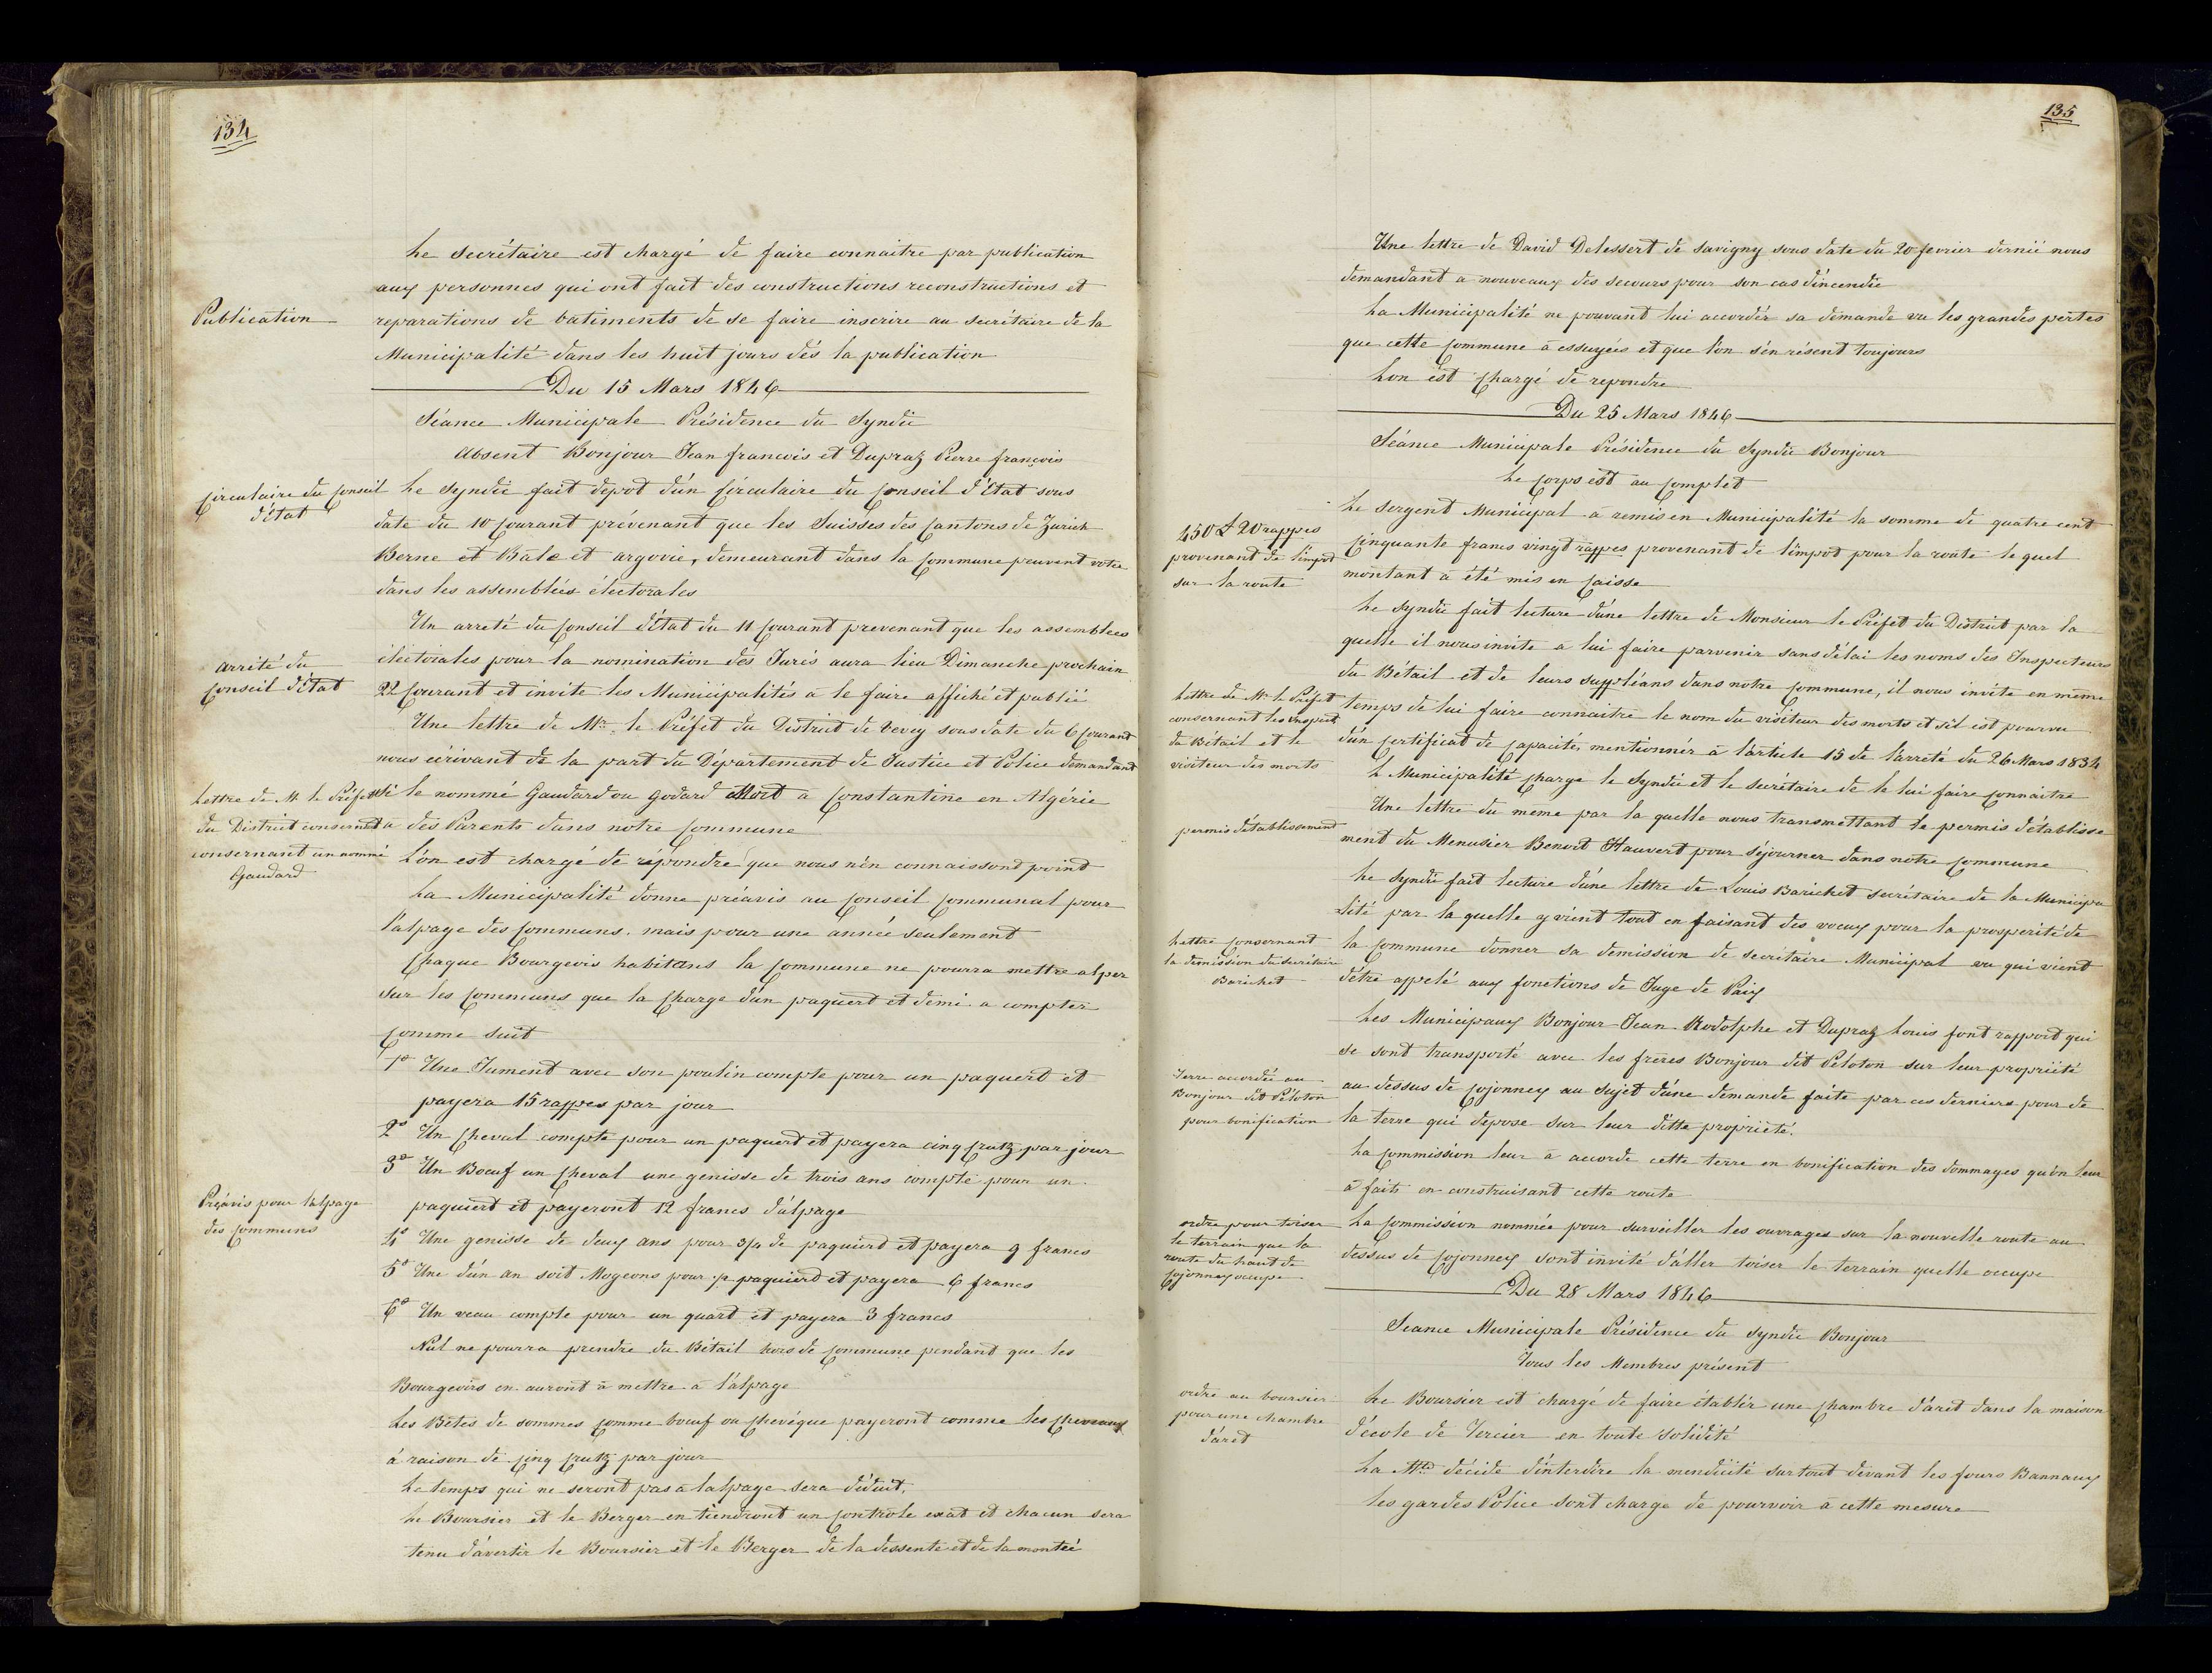 134
Le Secrétaire est chargé de faire connaitre par publication
aux personnes qui ont fait des constructions reconstructions et
Publication
reparations de batiments de se faire inscrire au secrétaire de la
Municipalité dans les huit jours dés la publication
Du 15 Mars 1846
Séance Municipale Présidence du Syndic
Absent Bonjour Jean francois et Dupraz Pierre françois
Circulaire du Conseil
d'état
Le Syndic fait depot d'un Circulaire du Conseil d'Etat sous
date du 10 Courant prévenant que les Suisses des Cantons de Zurich
Berne et Bâle et argovie, demeurant dans la Commune peuvent voter
dans les assemblées électorales
Un arreté du Conseil d'Etat du 11 Courant prevenant que les assemblees
arrité du
Conseil d'Etat
électorales pour la nomination des Juris aura lieu Dimanche prochain
22 Courant et invite les Municipalités a le faire affiché et publié
Une lettre de Mr. le Préfet du District de Vevey sous date du 6 Courant
nous écrivant de la part du Département de Justice et Police demandant
Lettre de M. le Préfet
du District consernet
consernant un nommé
Gaudard
si le nommé Gaudard ou Godard Mort a Constantine en Algérie
a des Parents dans notre Commune
L'on est chargé de répondre que nous n'én connaissond point
La Municipalité donne préavis au Conseil Communal pour
l'alpage des Communs. mais pour une année seulement
Chaque Bourgeois habitans la Commune ne pourra mettre alper
sur les Communs que la Charge d'un paquert et demi a compter
Comme suit
1o Une Jument avec son poulin compte pour un paquert et
payera 15 rappes par jour
2o Un Cheval compte pour un paquerd et payera cinq Crutz par jour
3o Un Boeuf un Cheval une genisse de trois ans compte pour un
Préavis pour l'alpage
des Communs
paquiert et payeront 12 francs d'alpage
4o Une genisse de deux ans pour 3/4 de paquierd et payera 9 francs
5o Une d'un an soit Mogeons pour 1/2 paquierd et payera 6 francs
6o Un veau compte pour un quart et payera 3 francs
Nul ne pourra prendre du Bétail hors de Commune pendant que les
Bourgeoirs en auront à mettre à l'alpage
Les Bêtes de sommes Comme boeuf ou Chevéque payeront comme les Chevraux
à raison de Cinq Crutz par jour
Le temps qui ne seront pas a lalpage sera déduit.
Le Boursier et le Berger en tiendront un Controle exat et chacun sera
tenu d'avertir le Boursier et le Berger de la dessente et de la monteé
135
Une lettre de David Delessert de Savigny sous date du 20 fevrier dernié nous
demandant a nouveaux des secours pour son cas d'incendie
La Municipalité ne pouvant lui accordér sa demande vu les grandes pertes
que cette Commune à essuyées et que l'on s'én résent toujours
L'on est Chargé de repondre
Du 25 Mars 1846
Séance Municipale Présidence du Syndic Bonjour
Le Corps est au Complet
450 £ 20 rappes
provenant de l'impot
sur la route
Le Sergent Municipal à remis en Municipalité la somme de quatre cent
Cinquante francs vingt rappes provenant de l'impot pour la route le quel
montant à été mis en Caisse
Le Syndic fait lecture d'une lettre de Monsieur le Préfet du District par la
quelle il nous invite a lui faire parvenir sans délai les noms des Inspecteurs
du Bétail et de leurs suppléans dans notre Commune, il nous invite en même
Lettre de Mr. le Préfet
consernant les inspect.
du Bétail et le
visiteur des morts
temps de lui faire connaitre le nom du visiteur des morts et s'il est pourvu
d'un Certificat de Capacités mentionnér à l'article 15 de l'arreté du 26 Mars 1834
L Municipalité Charge le Syndic et le secrétaire de le lui faire Connaitre
Une lettre du même par la quelle nous transmettant le permis d'établisse
permis d'établissement
ment du Menusier Benoit Hauvert pour séjourner dans notre Commune
Le Syndic fait lecture d'une lettre de Louis Barichet secrétaire de la Municipa
lité par la quelle y vient tout en faisant des voeux pour la prosperité de
Lettre Consernant
la demission du secrétaire
Barichet
la Commune donner sa demission de secrétaire Municipal vu qui vient
d'étre appelé aux fonctions de Juge de Paix
Les Municipaux Bonjour Jean Rodolphe et Dupraz Louis font rapport qui
se sont transporté avec les freres Bonjour dit Péloton sur leur propriété
Terre accordée au
Bonjour dit Péloton
pour bonification
au dessus de Cojonnex au Sujet d'une demande faite par ces derniers pour de
la terre qui depose sur leur ditte propriété.
La Commission leur à accorde cette terre en bonification des dommages qu'on leur
à faits en construisant cette route
ordre pour toiser
le terrain que la
route du haut de
Cojonnex occupe
La Commission nommée pour surveiller les ouvrages sur la nouvelle route au
dessus de Cojonnex sont invité d'aller toiser le terrain quelle occupe
Du 28 Mars 1846
Seance Municipale Présidence du Syndic Bonjour
Tous les Membres présent
ordre au boursier
pour une chambre
d'aret
Le Boursier est chargé de faire établir une Chambre d'aret dans la maison
d'école de Tercier en toute solidité
La Mté décide d'interdire la mendicité surtout devant les fours Bannaux
les gardes Police sont charge de pourvoir à cette mesure